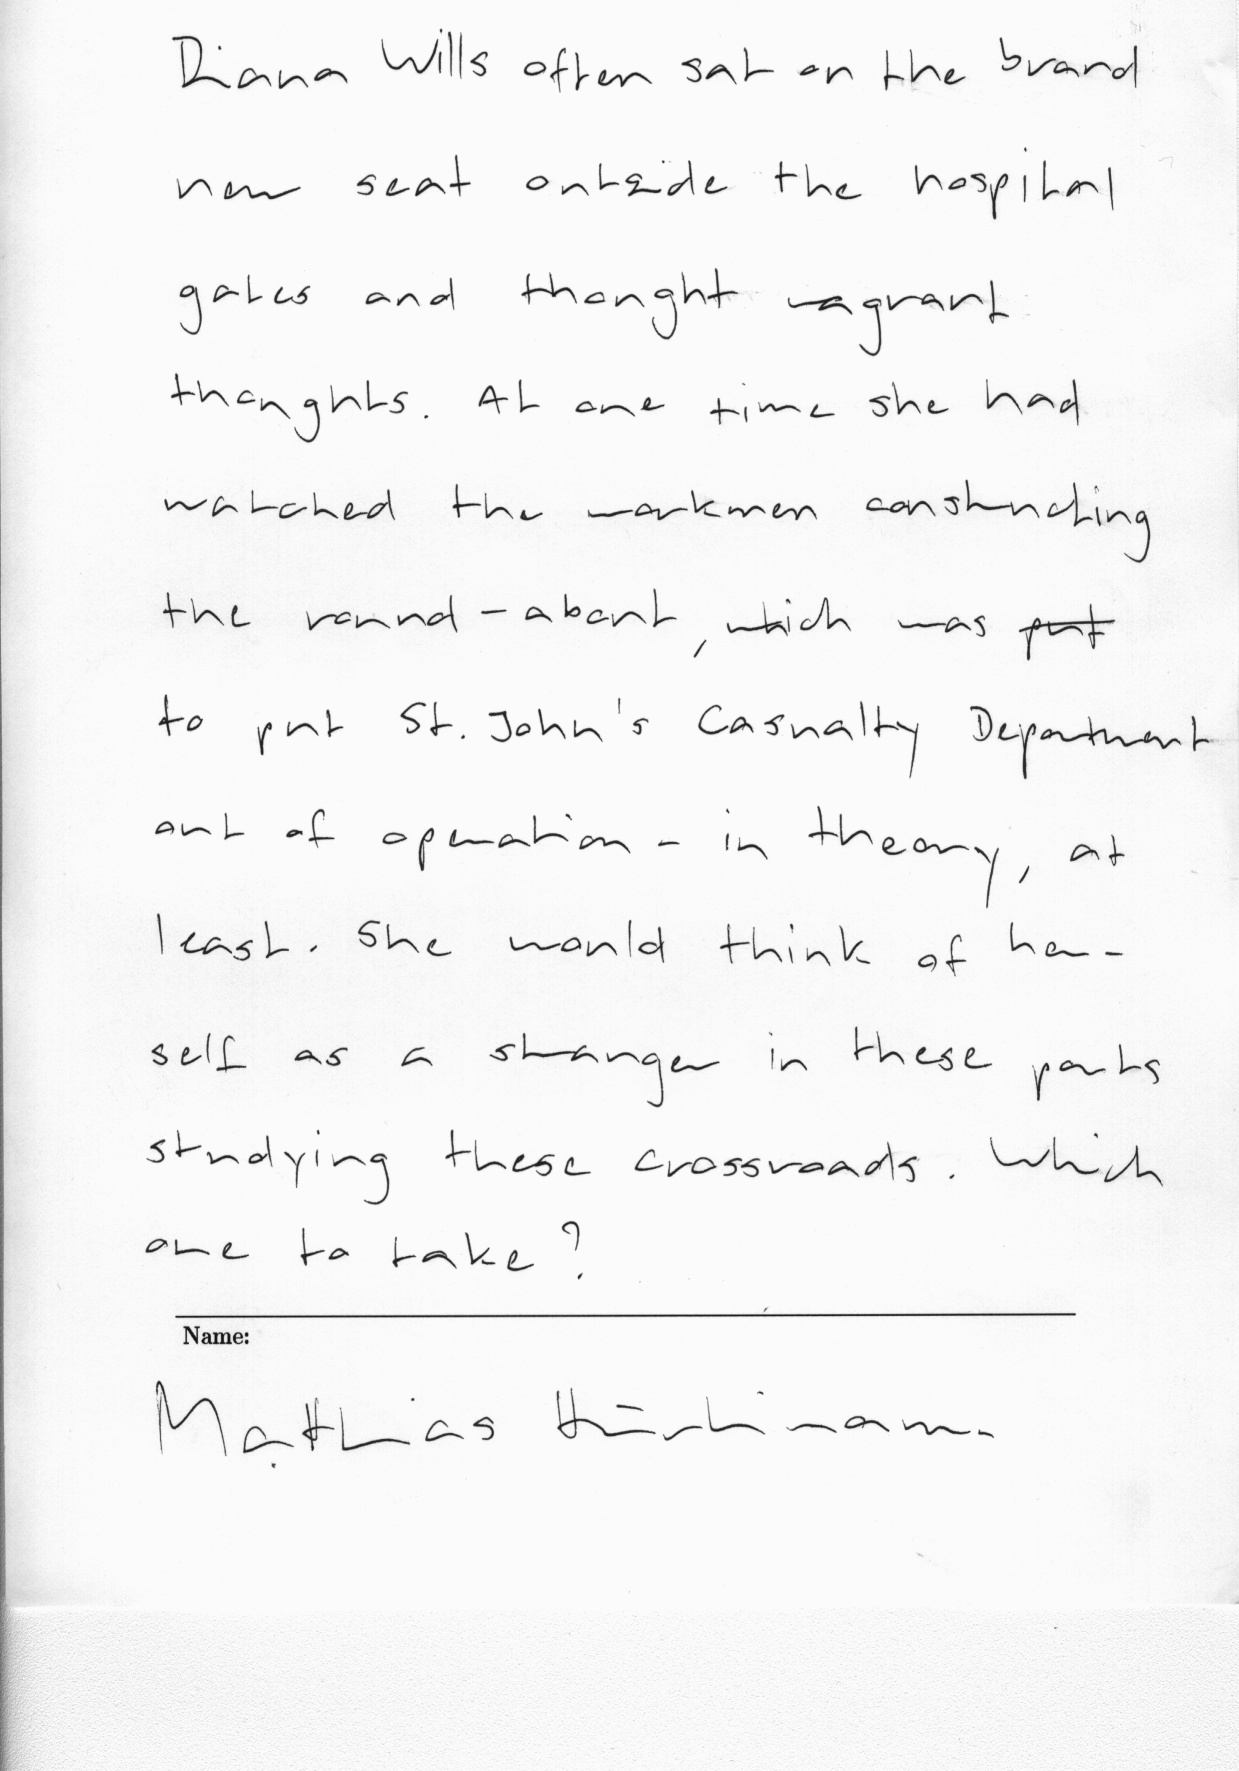 Diana Wills often sat on the brand
new seat outside the hospital
gates and thought vagrant
thoughts. At one time she had
watched the workmen constructing
the round-about, which was put
to put St. John's Casualty Department
out of operation - in theory, at
least. She would think of her-
self as a stranger in these parts
studying these crossroads. Which
one to take?
Name:
Matthias Hürlimann.